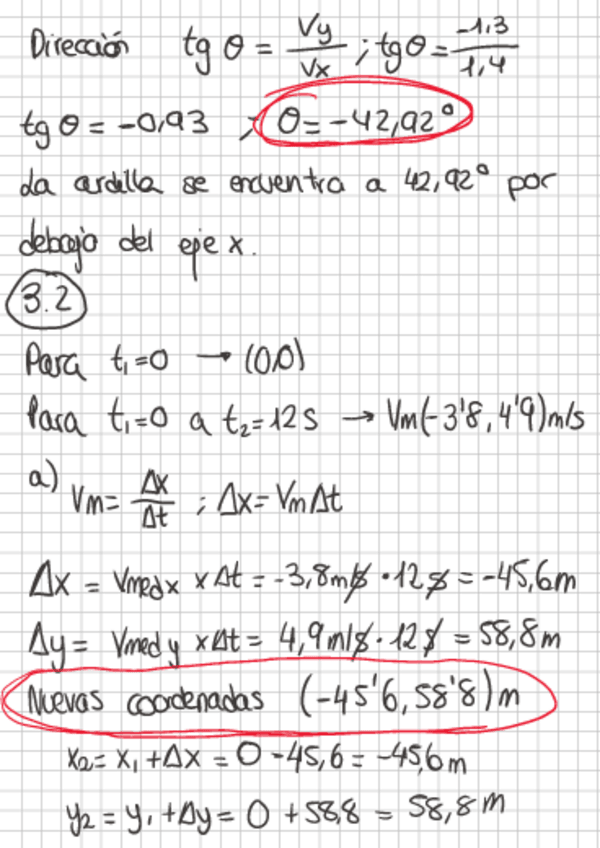 Dirección tg θ = Vy/Vx ; tg θ = -1,3/1,4
tg θ = -0,93 ; θ = -42,92°
La ardilla se encuentra a 42,92° por
debajo del eje x.
3.2
Para t₁=0 → (0,0)
Para t₁=0 a t₂=12s → Vm(-3'8, 4'9)m/s
a) Vm = Δx/Δt ; Δx = Vm Δt
Δx = Vmed x × Δt = -3,8m/s · 12s = -45,6m
Δy = Vmed y × Δt = 4,9m/s · 12s = 58,8m
Nuevas coordenadas (-45'6, 58'8) m
x₂ = x₁ + Δx = 0 - 45,6 = -45,6m
y₂ = y₁ + Δy = 0 + 58,8 = 58,8m